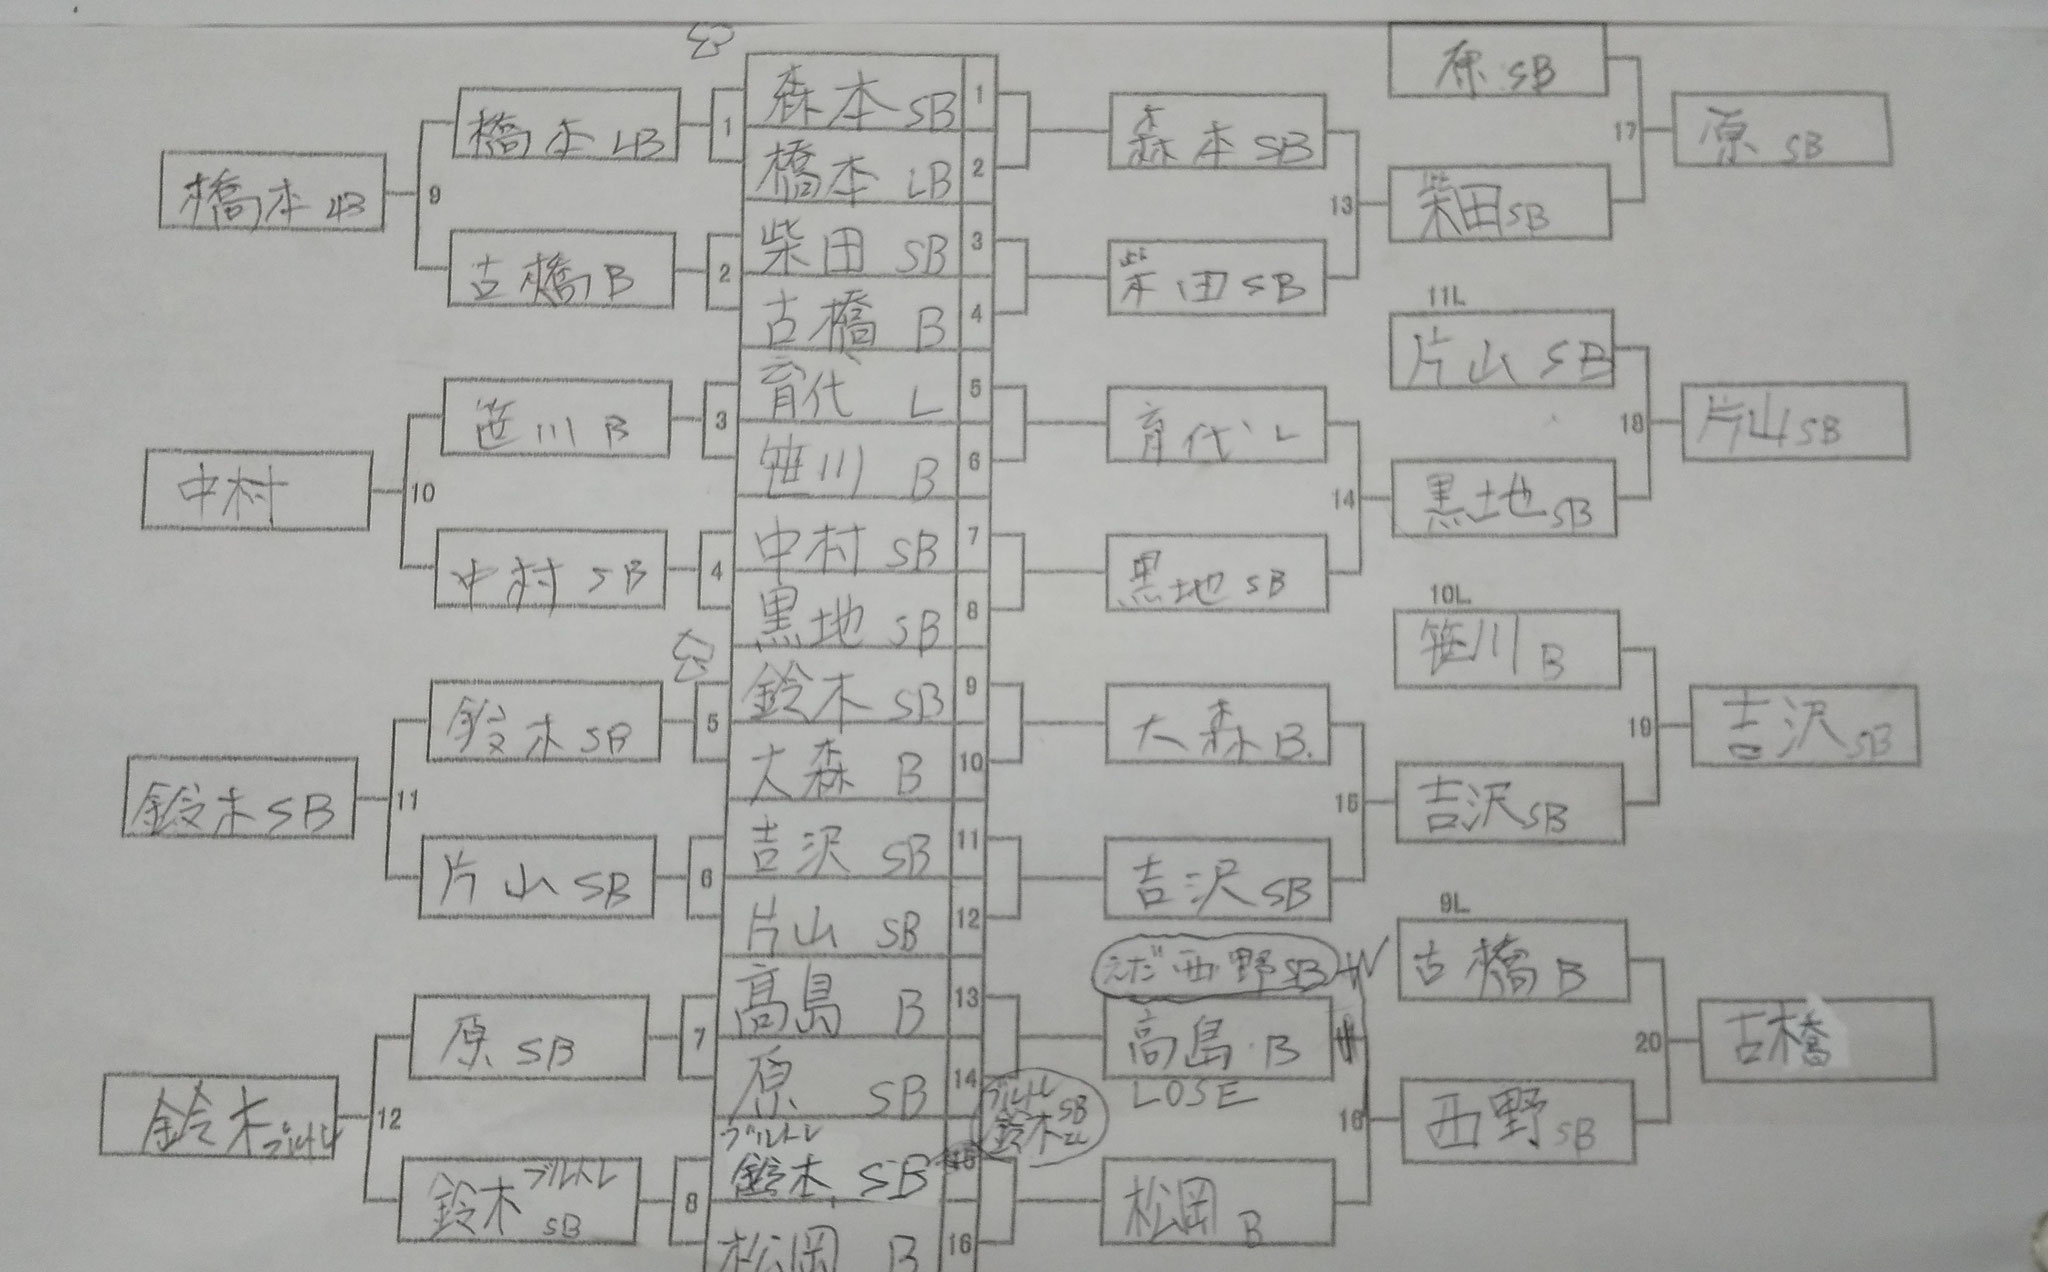 橋本 LB
9
橋本 LB
古橋 B
中村
10
笹川 B
中村 SB
鈴木 SB
11
鈴木 SB
片山 SB
鈴木 ブルトレ
12
原 SB
鈴木 ブルトレ SB
1
2
3
4
5
6
7
8
森本 SB 1
橋本 LB 2
柴田 SB 3
古橋 B 4
育代 L 5
笹川 B 6
中村 SB 7
黒地 SB 8
鈴木 SB 9
大森 B 10
吉沢 SB 11
片山 SB 12
高島 B 13
原 SB 14
ブルトレ
鈴木 SB 15
松岡 B 16
ブルトレ
鈴木 SB
森本 SB
13
柴田 SB
育代 L
14
黒地 SB
大森 B.
15
吉沢 SB
えだ 西野 SB W
高島 B
LOSE
16
松岡 B
原 SB
17
柴田 SB
原 SB
11L
片山 SB
18
黒地 SB
片山 SB
10L
笹川 B
19
吉沢 SB
吉沢 SB
9L
古橋 B
20
西野 SB
古橋